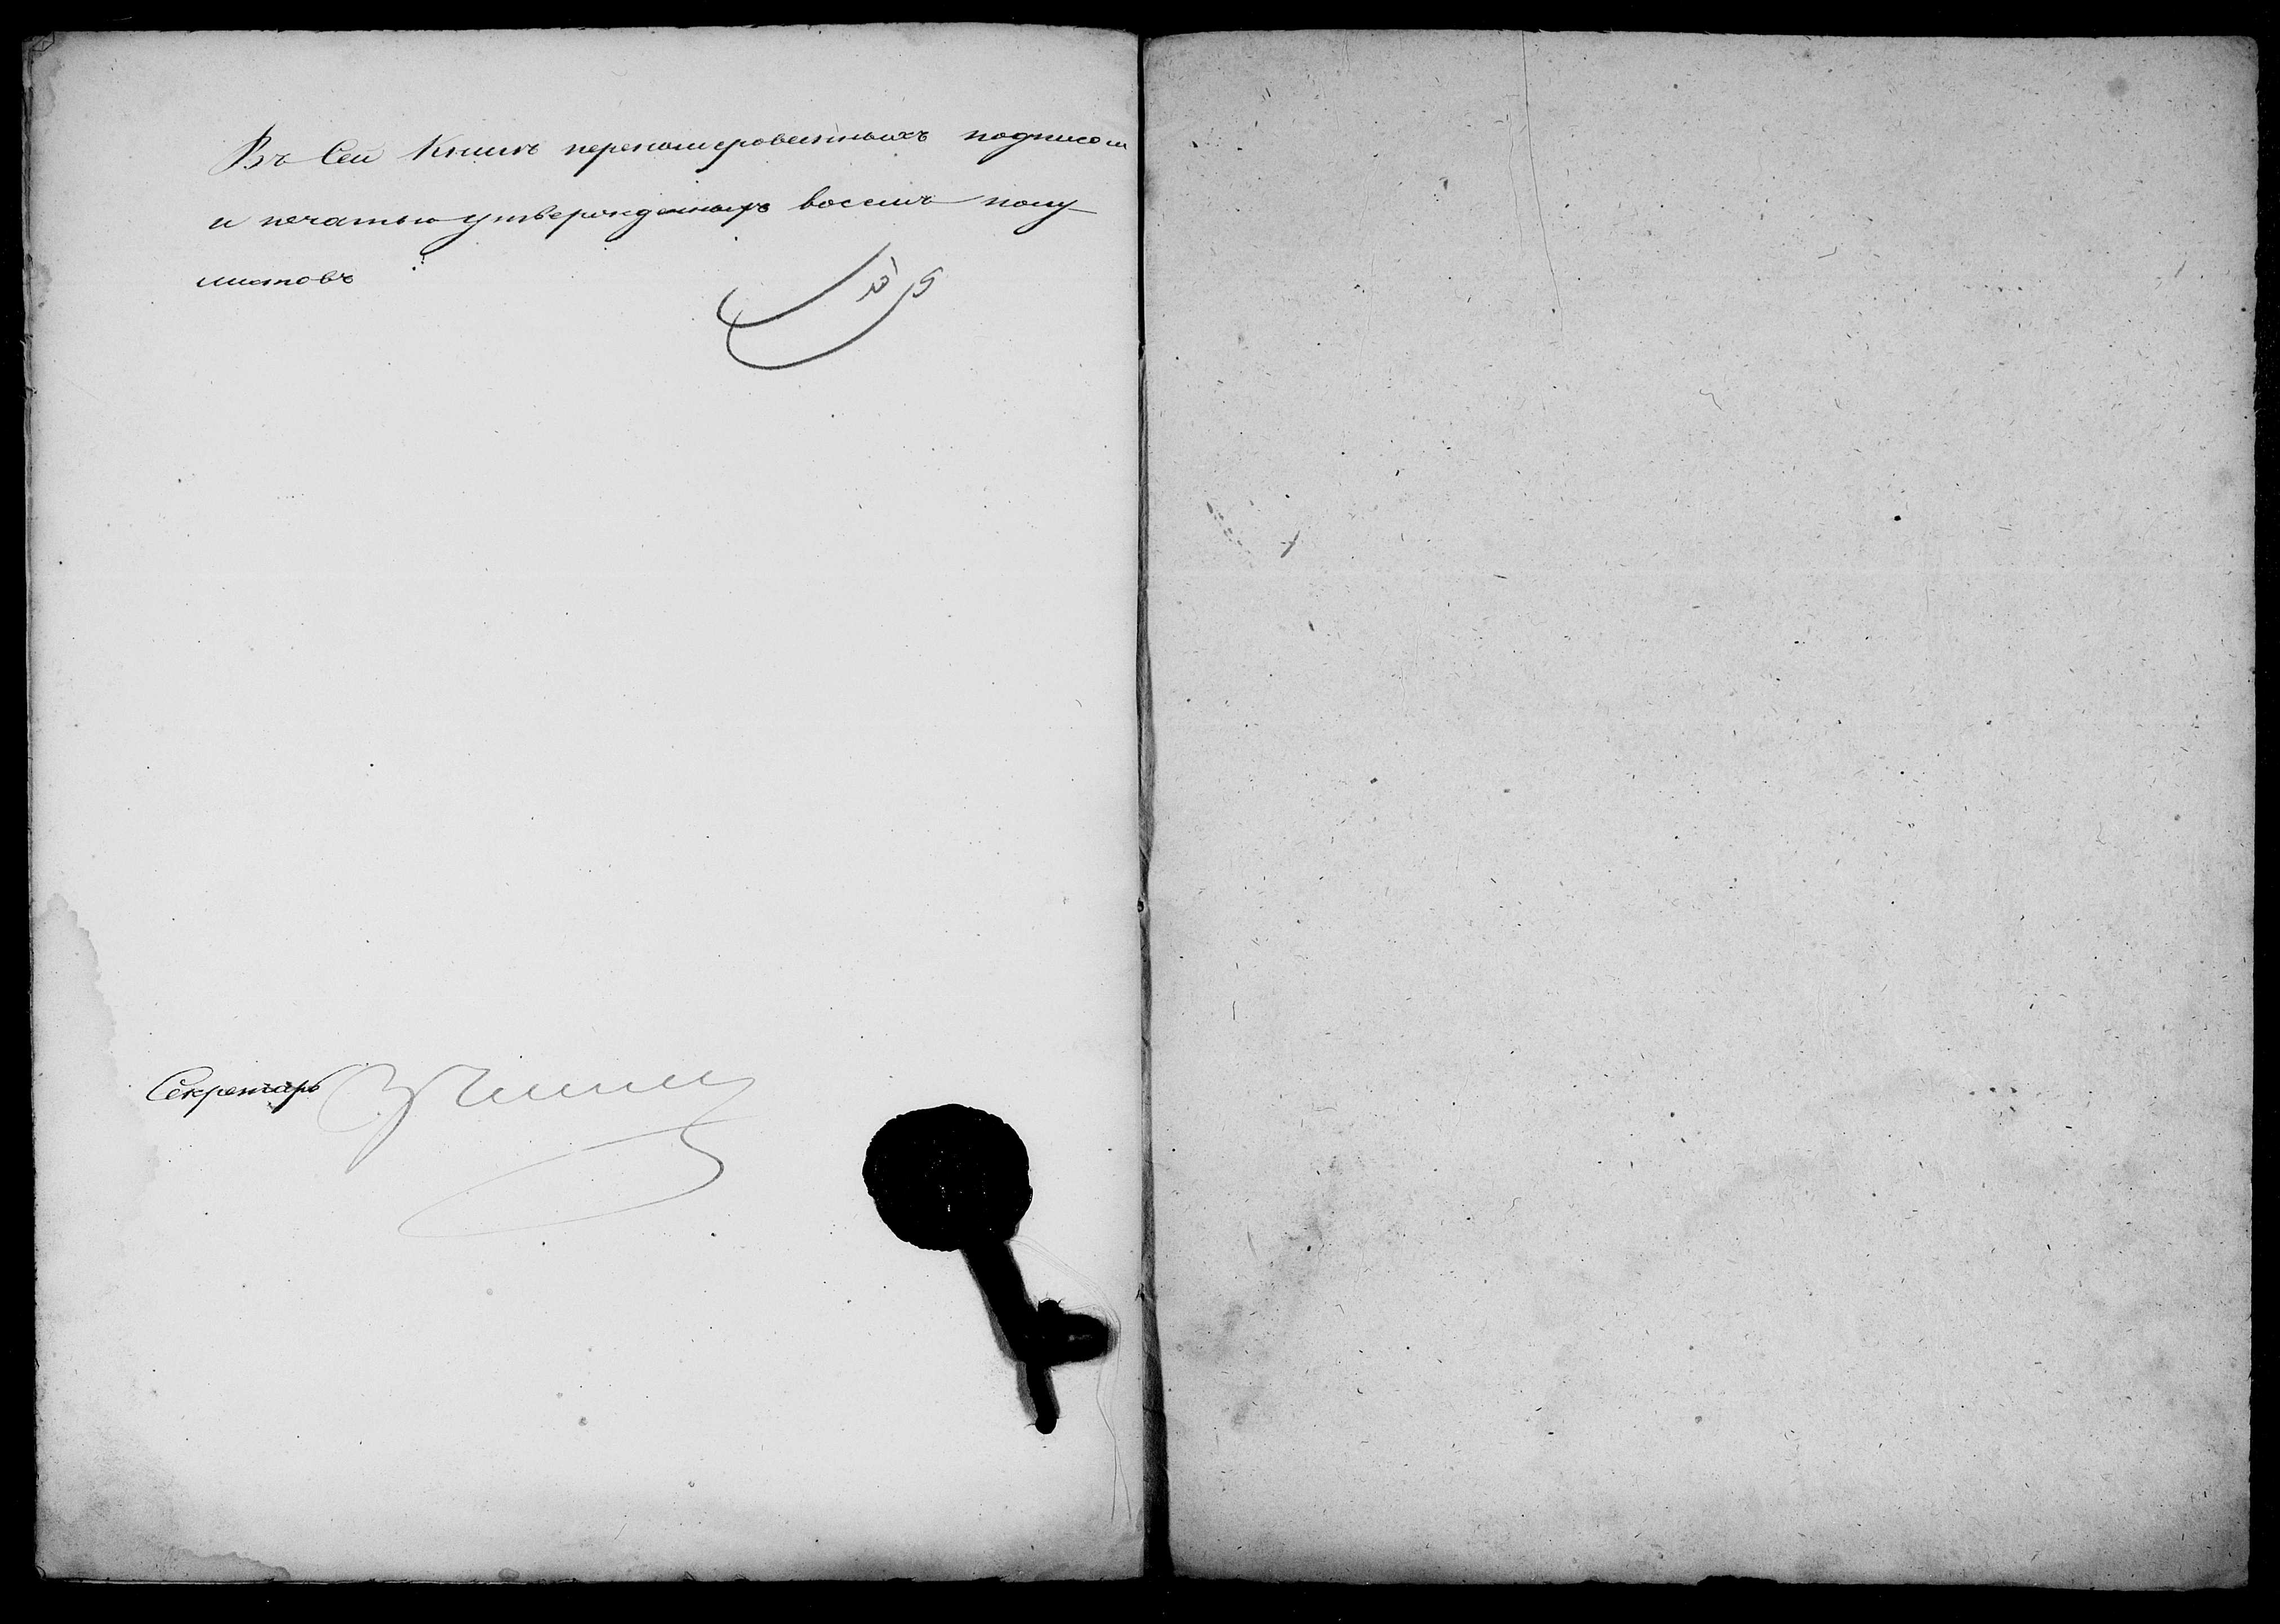 Въ Сей Книгѣ переномерованныхъ подписом
и печатью утвержденныхъ восемь полу
листовъ
Секретарь